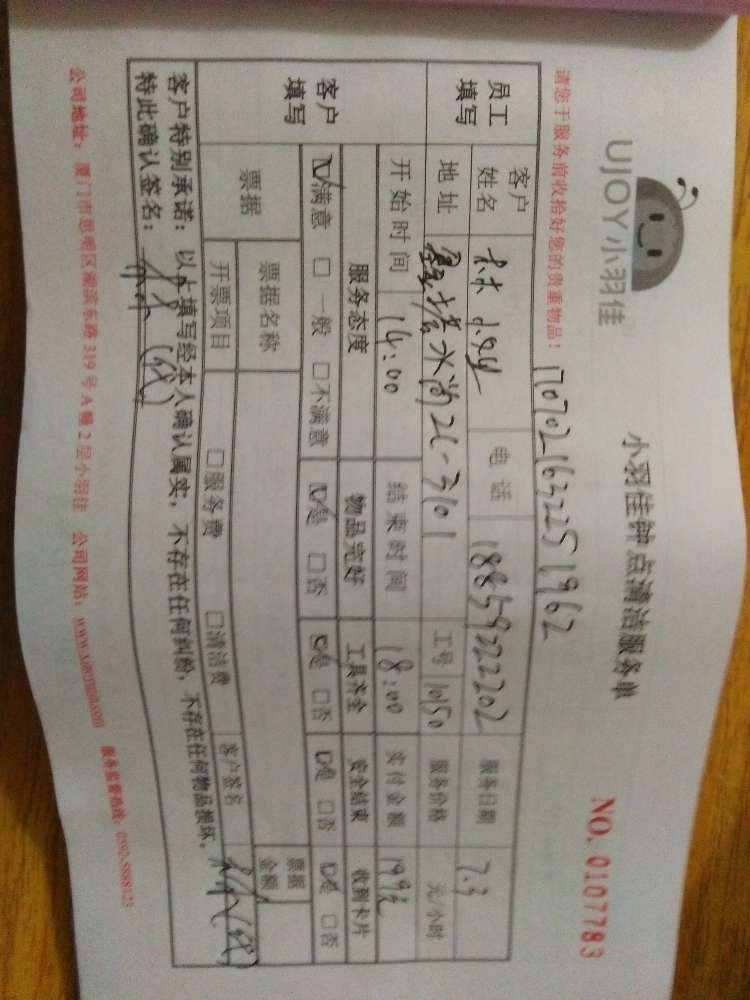 UJOY小羽佳
小羽佳钟点清洁服务单
NO. 0107783
请您于服务前收拾好您的贵重物品！
员工填写
客户姓名 林 电话 18859222202 服务日期 7.3
地址 水 2C-3101 工号 10150 服务价格 元/小时
开始时间 14:00 结束时间 18:00 实付金额 199元
客户填写
服务态度 物品完好 工具齐全 安全结束 收到卡片
☑满意 □一般 □不满意 ☑是 □否 ☑是 □否 ☑是 □否 ☑是 □否
票据 票据名称 票据金额
开票项目 □服务费 □清洁费 客户签名 (代)
客户特别承诺：以上填写经本人确认属实，不存在任何纠纷，不存在任何物品损坏。
特此确认签名： (代)
公司地址：厦门市思明区湖滨东路319号A幢2层小羽佳 公司网站： 服务监督热线：0592-5888123